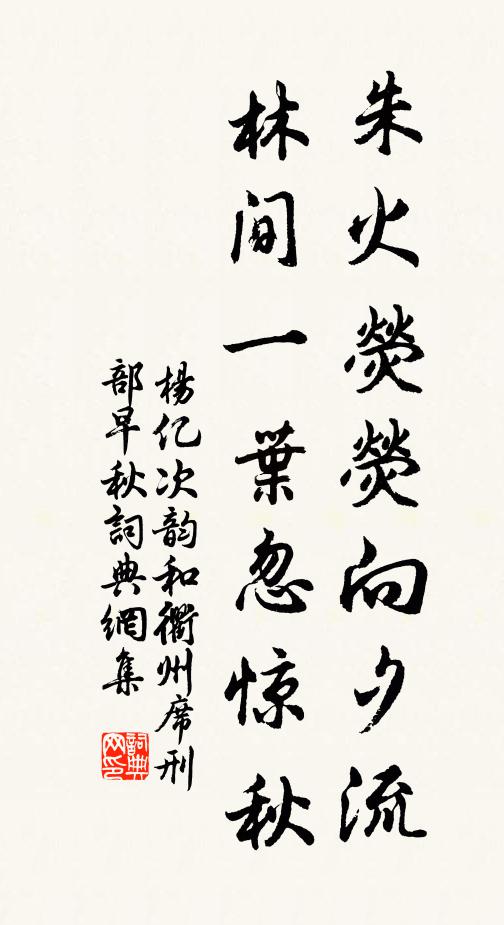 朱火熒熒向夕流
林间一葉忽惊秋
楊亿次韵和衢州席刑
部早秋詞典網集
詞典网印